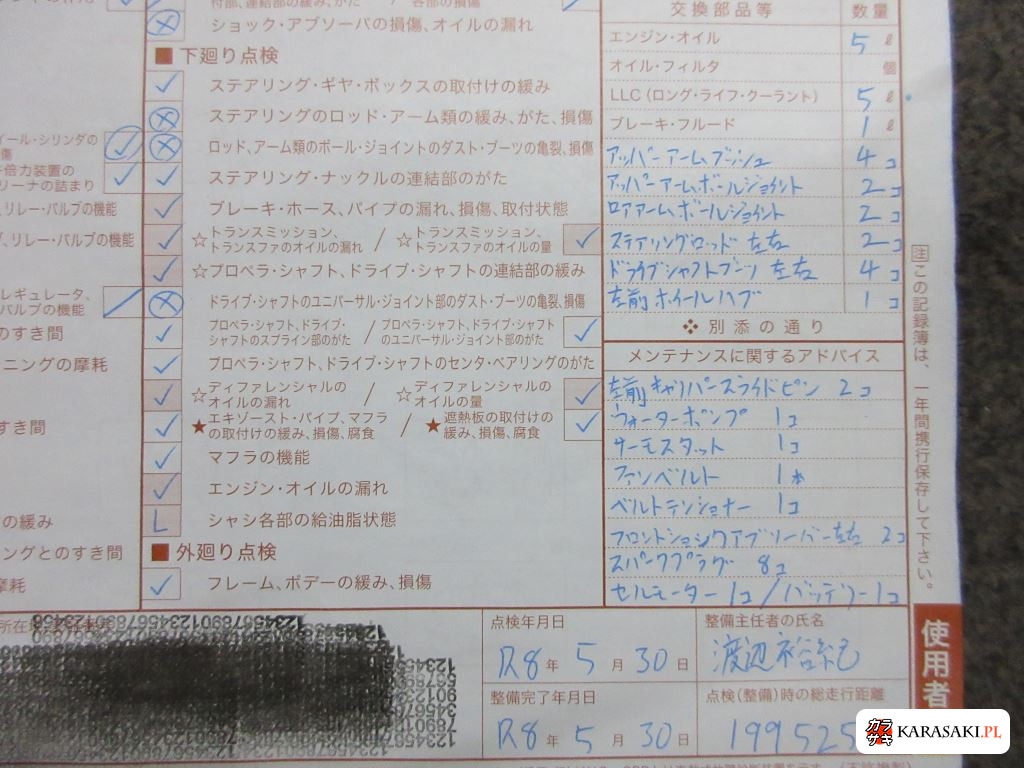 ショック・アブソーバの損傷、オイルの漏れ
■ 下廻り点検
ステアリング・ギヤ・ボックスの取付けの緩み
ステアリングのロッド・アーム類の緩み、がた、損傷
ロッド、アーム類のボール・ジョイントのダスト・ブーツの亀裂、損傷
ステアリング・ナックルの連結部のがた
ブレーキ・ホース、パイプの漏れ、損傷、取付状態
☆トランスミッション、トランスファのオイルの漏れ / ☆トランスミッション、トランスファのオイルの量
☆プロペラ・シャフト、ドライブ・シャフトの連結部の緩み
ドライブ・シャフトのユニバーサル・ジョイント部のダスト・ブーツの亀裂、損傷
プロペラ・シャフト、ドライブ・シャフトのスプライン部のがた / プロペラ・シャフト、ドライブ・シャフトのユニバーサル・ジョイント部のがた
プロペラ・シャフト、ドライブ・シャフトのセンタ・ベアリングのがた
☆ディファレンシャルのオイルの漏れ / ☆ディファレンシャルのオイルの量
★エキゾースト・パイプ、マフラの取付けの緩み、損傷、腐食 / ★遮熱板の取付けの緩み、損傷、腐食
マフラの機能
エンジン・オイルの漏れ
L シャシ各部の給油脂状態
■ 外廻り点検
フレーム、ボデーの緩み、損傷
イール・シリンダの
倍力装置の
リーナの詰まり
、リレー・バルブの機能
、リレー・バルブの機能
レギュレータ、
バルブの機能
のすき間
ニングの摩耗
すき間
の緩み
ングとのすき間
摩耗
交換部品等 数量
エンジン・オイル 5 ℓ
オイル・フィルタ 個
LLC(ロング・ライフ・クーラント) 5 ℓ
ブレーキ・フルード 1 ℓ
アッパーアームブッシュ 4コ
アッパーアームボールジョイント 2コ
ロアアームボールジョイント 2コ
ステアリングロッド 左右 2コ
ドライブシャフトブーツ 左右 4コ
左前 ホイールハブ 1コ
❖ 別添の通り
メンテナンスに関するアドバイス
左前 キャリパースライドピン 2コ
ウォーターポンプ 1コ
サーモスタット 1コ
ファンベルト 1本
ベルトテンショナー 1コ
フロントショックアブソーバー左右 2コ
スパークプラグ 8コ
セルモーター 1コ/バッテリー 1コ
注 この記録簿は、一年間携行保存して下さい。
使用者
点検年月日
R8 年 5 月 30 日
整備主任者の氏名
渡辺
整備完了年月日
R8 年 5 月 30 日
点検(整備)時の総走行距離
199525
カラサキ KARASAKI.PL